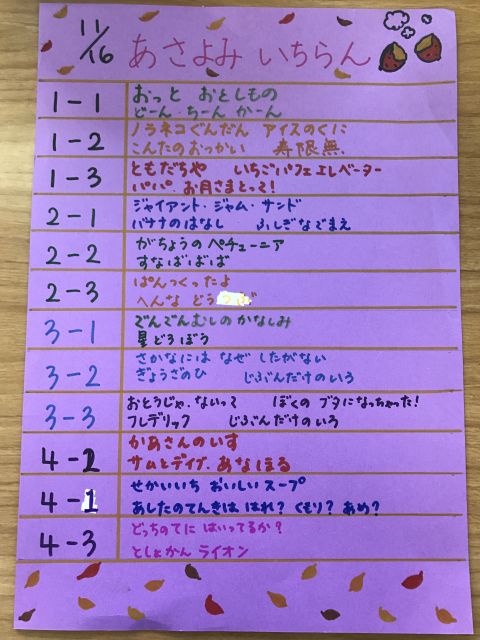 11/16 あさよみ いちらん
1-1 おっと おとしもの
どーん ちーん かーん
1-2 ノラネコぐんだん アイスのくに
こんたのおつかい 寿限無.
1-3 ともだちや いちごパフェエレベーター
パパ、お月さまとって!
2-1 ジャイアント・ジャム・サンド
バナナのはなし ふしぎなでまえ
2-2 がちょうのペチューニア
すなばばば
2-3 ぱんつくったよ
へんな どうつぶ
3-1 でんでんむしのかなしみ
星どろぼう
3-2 さかなには なぜ したがない
ぎょうざのひ じぶんだけのいろ
3-3 おとうじゃ、ないって ぼくの ブタになっちゃった!
フレデリック じぶんだけのいろ
4-2 かあさんのいす
サムとデイブ、あなをほる
4-1 せかいいち おいしい スープ
あしたのてんきは はれ? くもり? あめ?
4-3 どっちのてに はいってるか?
としょかん ライオン